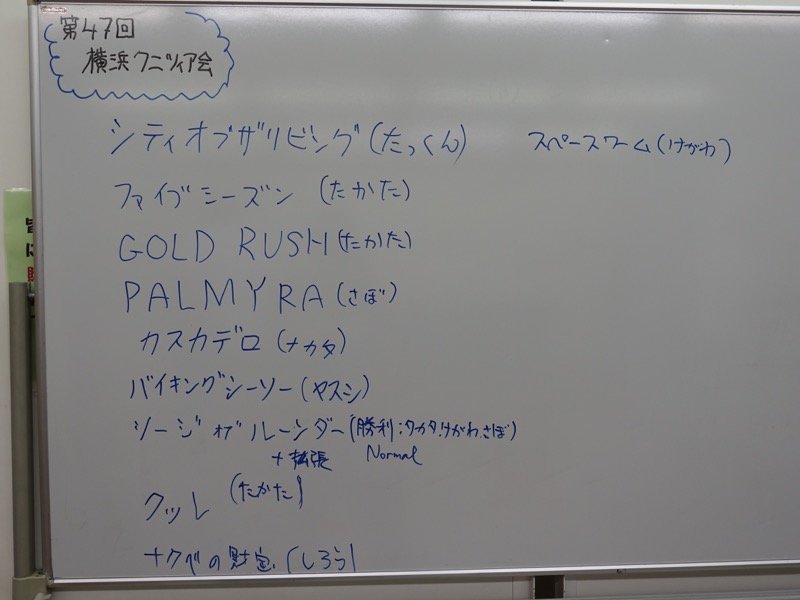 第47回
横浜クニツィア会
シティオブザリビング(たっくん)
スペースワーム(けがわ)
ファイブシーズン (たかた)
GOLD RUSH(たかた)
PALMYRA(さぼ)
カスカデロ(ナカタ)
バイキングシーソー(ヤスシ)
シージオブルーンダー(勝利:タカタ.けがわ.さぼ)
+拡張 Normal
クッレ (たかた)
ナクベの財宝 (しろう)